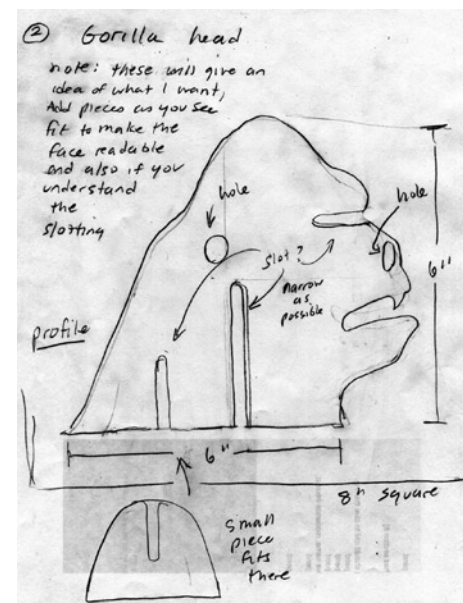 ② Gorilla head
note: these will give an
idea of what I want,
Add pieces as you see
fit to make the
face readable
and also if you
understand
the
slotting
hole
hole
slot?
narrow
as
possible
6"
profile
6"
8" square
small
piece
fits
there